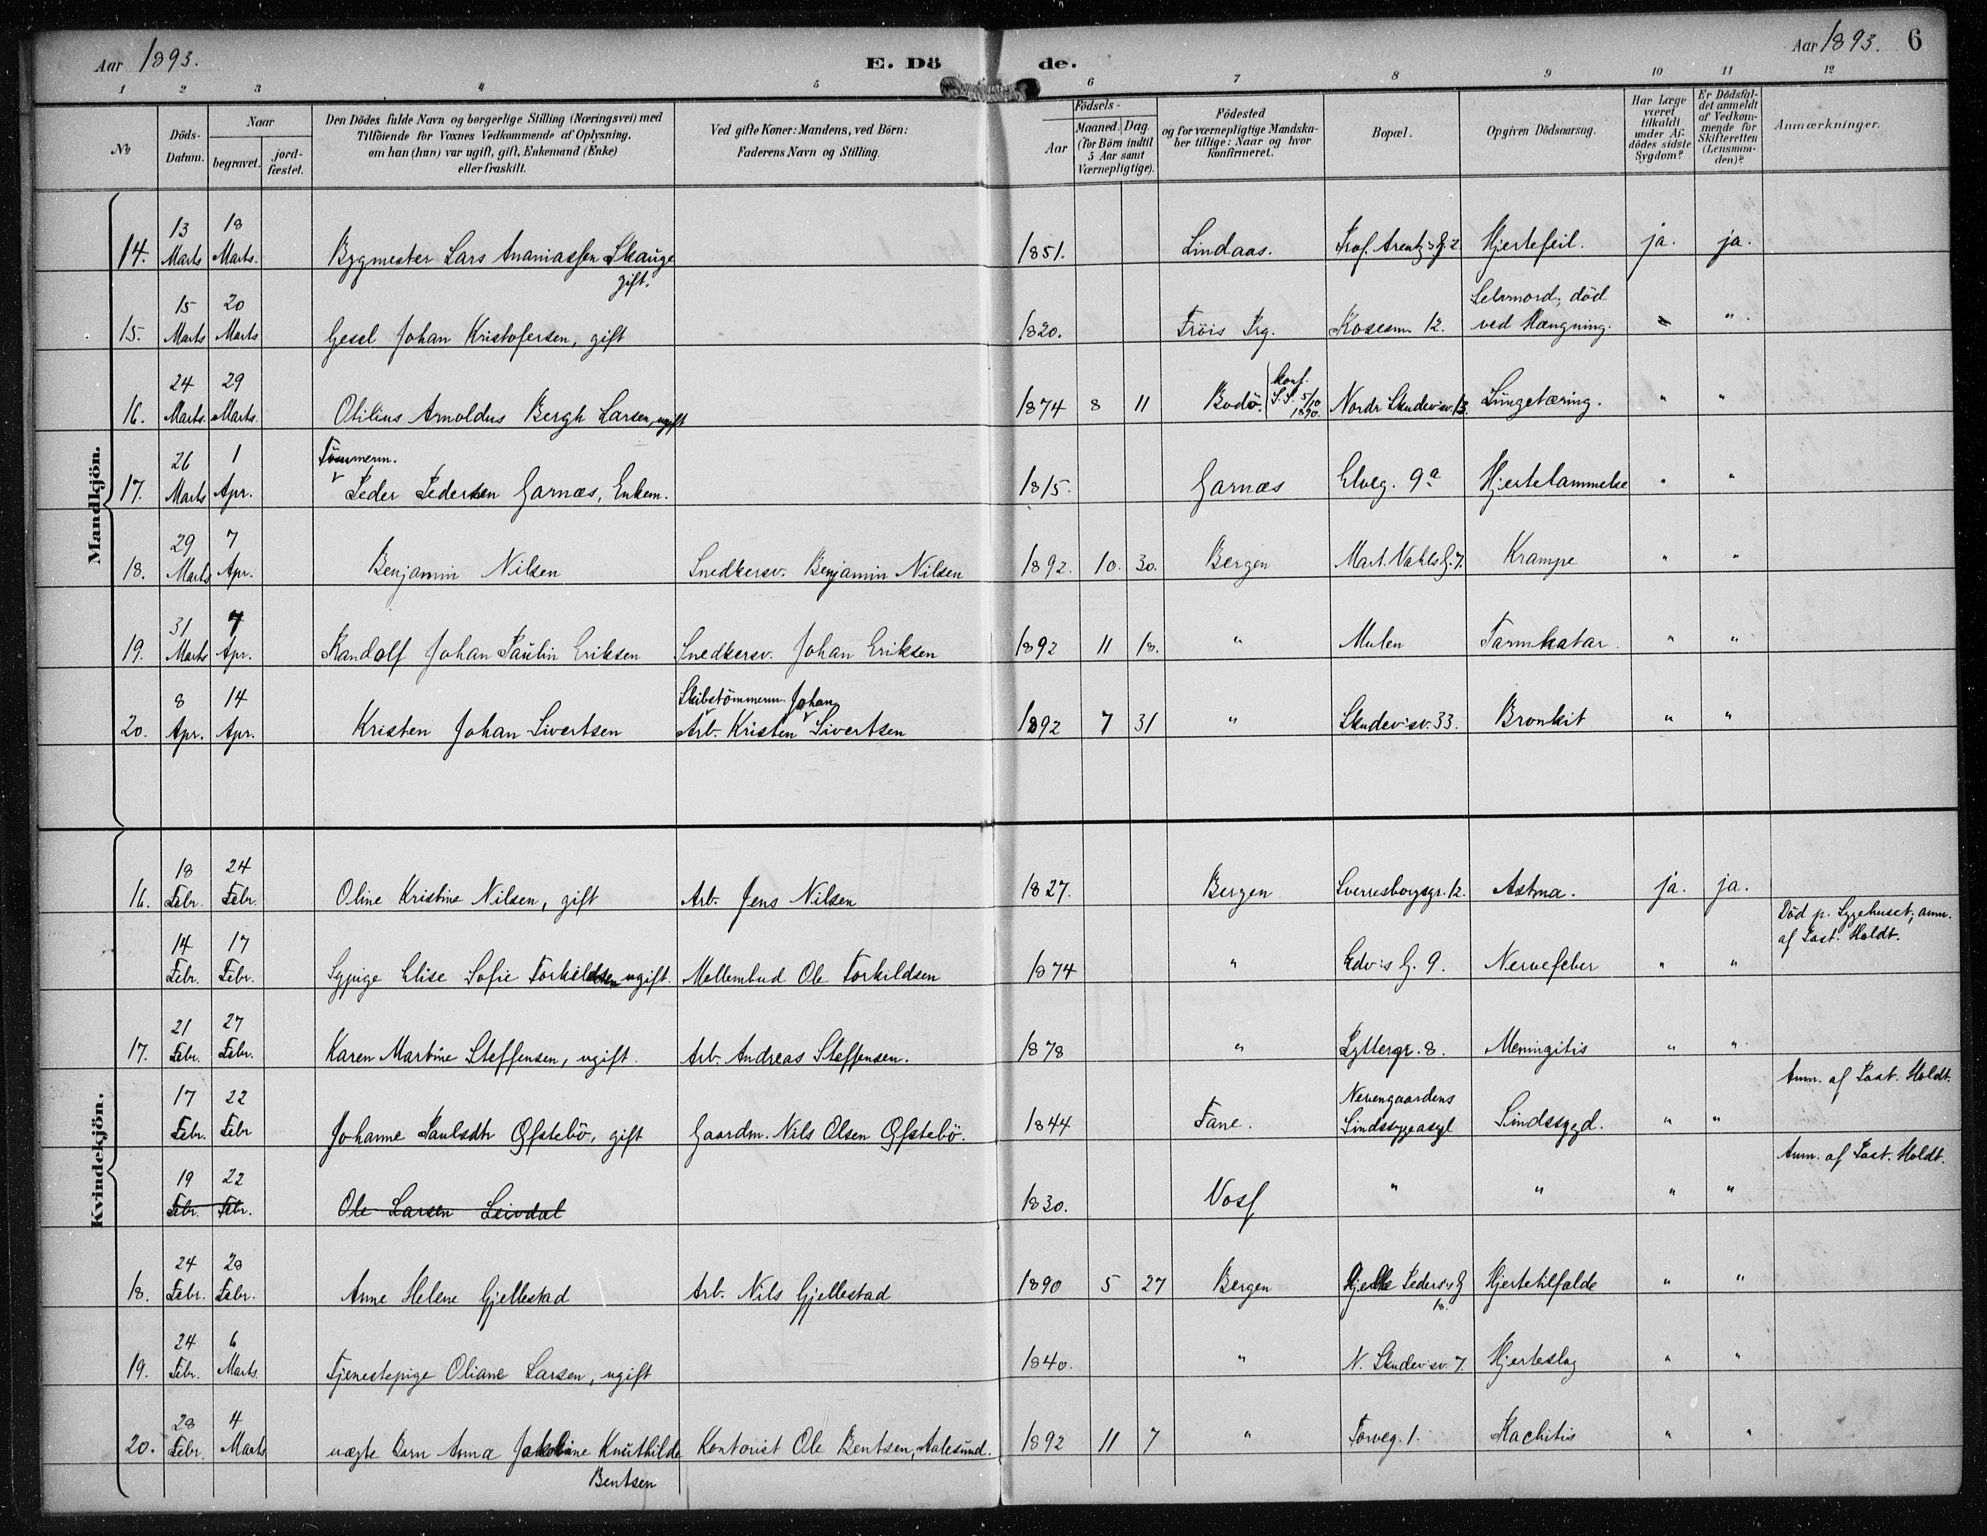 Aar 1893.
E. Döde.
Aar 1893. 6
1 2 3 4 5 6 7 8 9 10 11 12
No
Döds-Datum.
Naar
begravet.
jord-fæstet.
Den Dödes fulde Navn og borgerlige Stilling (Næringsvei) med
Tilföiende for Voxnes Vedkommende af Oplysning,
om han (hun) var ugift, gift, Enkemand (Enke)
eller fraskilt.
Ved gifte Koner: Mandens, ved Börn:
Faderens Navn og Stilling.
Födsels-
Aar
Maaned. Dag.
(for Börn indtil
5 Aar samt
Værnepligtige).
Födested
og for værnepligtige Mandska-
ber tillige: Naar og hvor
konfirmeret.
Bopæl.
Opgiven Dödsaarsag.
Har Læge
været
tilkaldt
under Af-
dödes sidste
Sygdom?
Er Dödsfal-
det anmeldt
af Vedkom-
mende for
Skifteretten
(Lensman-
den)?
Anmærkninger.
Mandkjön.
14. 13 Marts 18 Marts. Bygmester Lars Ananiassen Skauge gift. 1851. Lindaas. Prof. Arentz's G. 2 Hjertefeil. ja. ja.
15. 15 Marts 20 Marts Gesel Johan Kristofersen, gift 1820. Fröis Prg. Kosesm. 12. Selvmord; død ved Hængning. "
16. 24 Marts 29 Marts. Otilius Arnoldus Bergh Larsen, ugift 1874 8 11 Bodö. konf. S.P. 5/10 1890. Nordr Skudev'sv. 13. Lungetæring. " "
17. 26 Marts 1 Apr. Tömmerm. Peder Pedersen Garnæs, Enkem. 1815. Garnæs Elveg. 9a Hjertelammelse " "
18. 29 Marts 7 Apr. Benjamin Nilsen Snedkersv. Benjamin Nilsen 1892. 10. 30. Bergen Mart. Vahls G. 7. Krampe " "
19. 31 Marts 7 Apr. Randolf Johan Paulin Eriksen Snedkersv. Johan Eriksen 1892 11 18. " Mulen Tarmkatar. " "
20. 8 Apr. 14 Apr. Kristen Johan Sivertsen Skibstömmerm. Johan Arb. Kristen Sivertsen 1892 7 31 " Skudev'sv. 33. Bronkit " "
Kvindekjön.
16. 18 Febr. 24 Febr. Oline Kristine Nilsen, gift Arb. Jens Nilsen 1827. Bergen Sverresborgsgr. 12. Astma. ja. ja.
14 Febr. 17 Febr. Sypige Elise Sofie Torkildsen ugift. Mellembud Ole Torkildsen 1874 " Edv's G. 9. Nervefeber " " Död p. Sygehuset; anm. af Past. Holdt.
17. 21 Febr. 27 Febr. Karen Martine Steffensen, ugift. Arb. Andreas Steffensen. 1878 " Lyttergr. 8. Meningitis " "
17 Febr. 22 Febr Johanne Paulsdtr Øfstebö, gift Gaardm. Nils Olsen Øfstebö. 1844 Fane. Nevengaardens Sindssygeasyl Sindssygd. " " Anm. af Past. Holdt.
19 Febr. 22 Febr. Ole Larsen Leivdal 1830. Voss " " " " Anm. af Past. Holdt.
18. 24 Febr. 28 Febr. Anne Helene Gjellestad Arb. Nils Gjellestad 1890 5 27 Bergen Pederss G 18. Hjertetilfælde " "
19. 24 Febr. 6 Marts. Tjenestepige Oliane Larsen, ugift 1840. " N. Skudev'sv. 7. Hjerteslag " "
20. 28 Febr. 4 Marts uægte Barn Anna Jakobine Knuthilde Bentsen Kontorist Ole Bentsen, Aalesund. 1892 11 7 " Torveg. 1. Rachitis " "